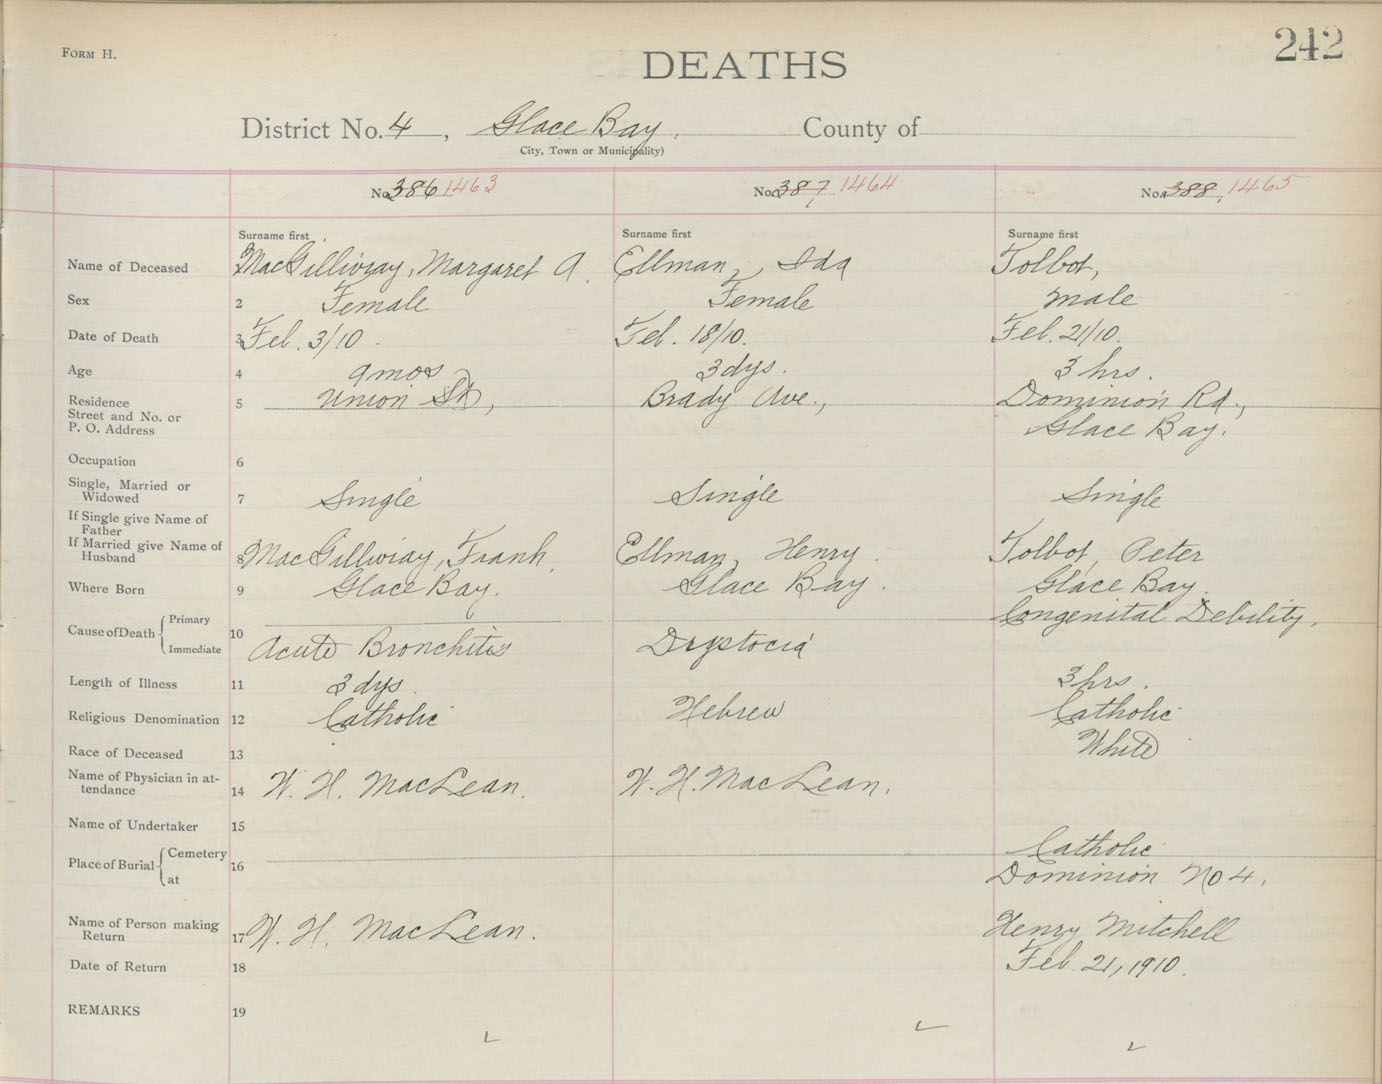 FORM H.
242
DEATHS
District No. 4, Glace Bay, County of
City, Town or Municipality)
No. 386 1463 No. 387 1464 No. 388, 1465
Surname first Surname first Surname first
Name of Deceased MacGillivray, Margaret A. Ellman, Ida Tolbot,
Sex 2 Female Female male
Date of Death 3 Feb. 3/10. Feb. 18/10. Feb. 21/10.
Age 4 9mos 3dys. 3 hrs.
Residence 5 Union St, Brady Ave., Dominion Rd.,
Street and No. or
P. O. Address Glace Bay.
Occupation 6
Single, Married or
Widowed 7 Single Single Single
If Single give Name of
Father
If Married give Name of
Husband 8 MacGillivray, Frank. Ellman, Henry. Tolbot, Peter
Where Born 9 Glace Bay. Glace Bay. Glace Bay.
Cause of Death Primary 10 Congenital Debility.
Immediate Acute Bronchitis Drystocia
Length of Illness 11 3 dys. 3hrs.
Religious Denomination 12 Catholic Hebrew Catholic
Race of Deceased 13 White
Name of Physician in at-
tendance 14 W. H. MacLean. W. H. MacLean.
Name of Undertaker 15
Place of Burial Cemetery 16 Catholic
at Dominion No 4.
Name of Person making
Return 17 W. H. MacLean. Henry Mitchell
Date of Return 18 Feb. 21, 1910.
REMARKS 19